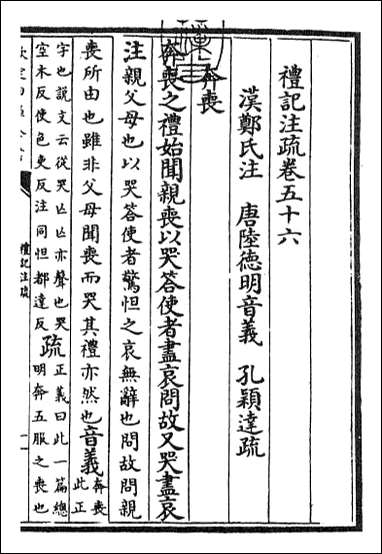 禮記注疏卷五十六
漢鄭氏注 唐陸德明音義 孔穎達疏
奔喪
奔喪之禮始聞親喪以哭答使者盡哀問故又哭盡哀
注親父母也以哭答使者驚怛之哀無辭也問故問親
喪所由也雖非父母聞喪而哭其禮亦然也音義奔喪此正
字也説文云從哭亾亾亦聲也哭空木反使色吏反注同怛都達反疏正義曰此一篇總明奔五服之喪也
禮記注疏